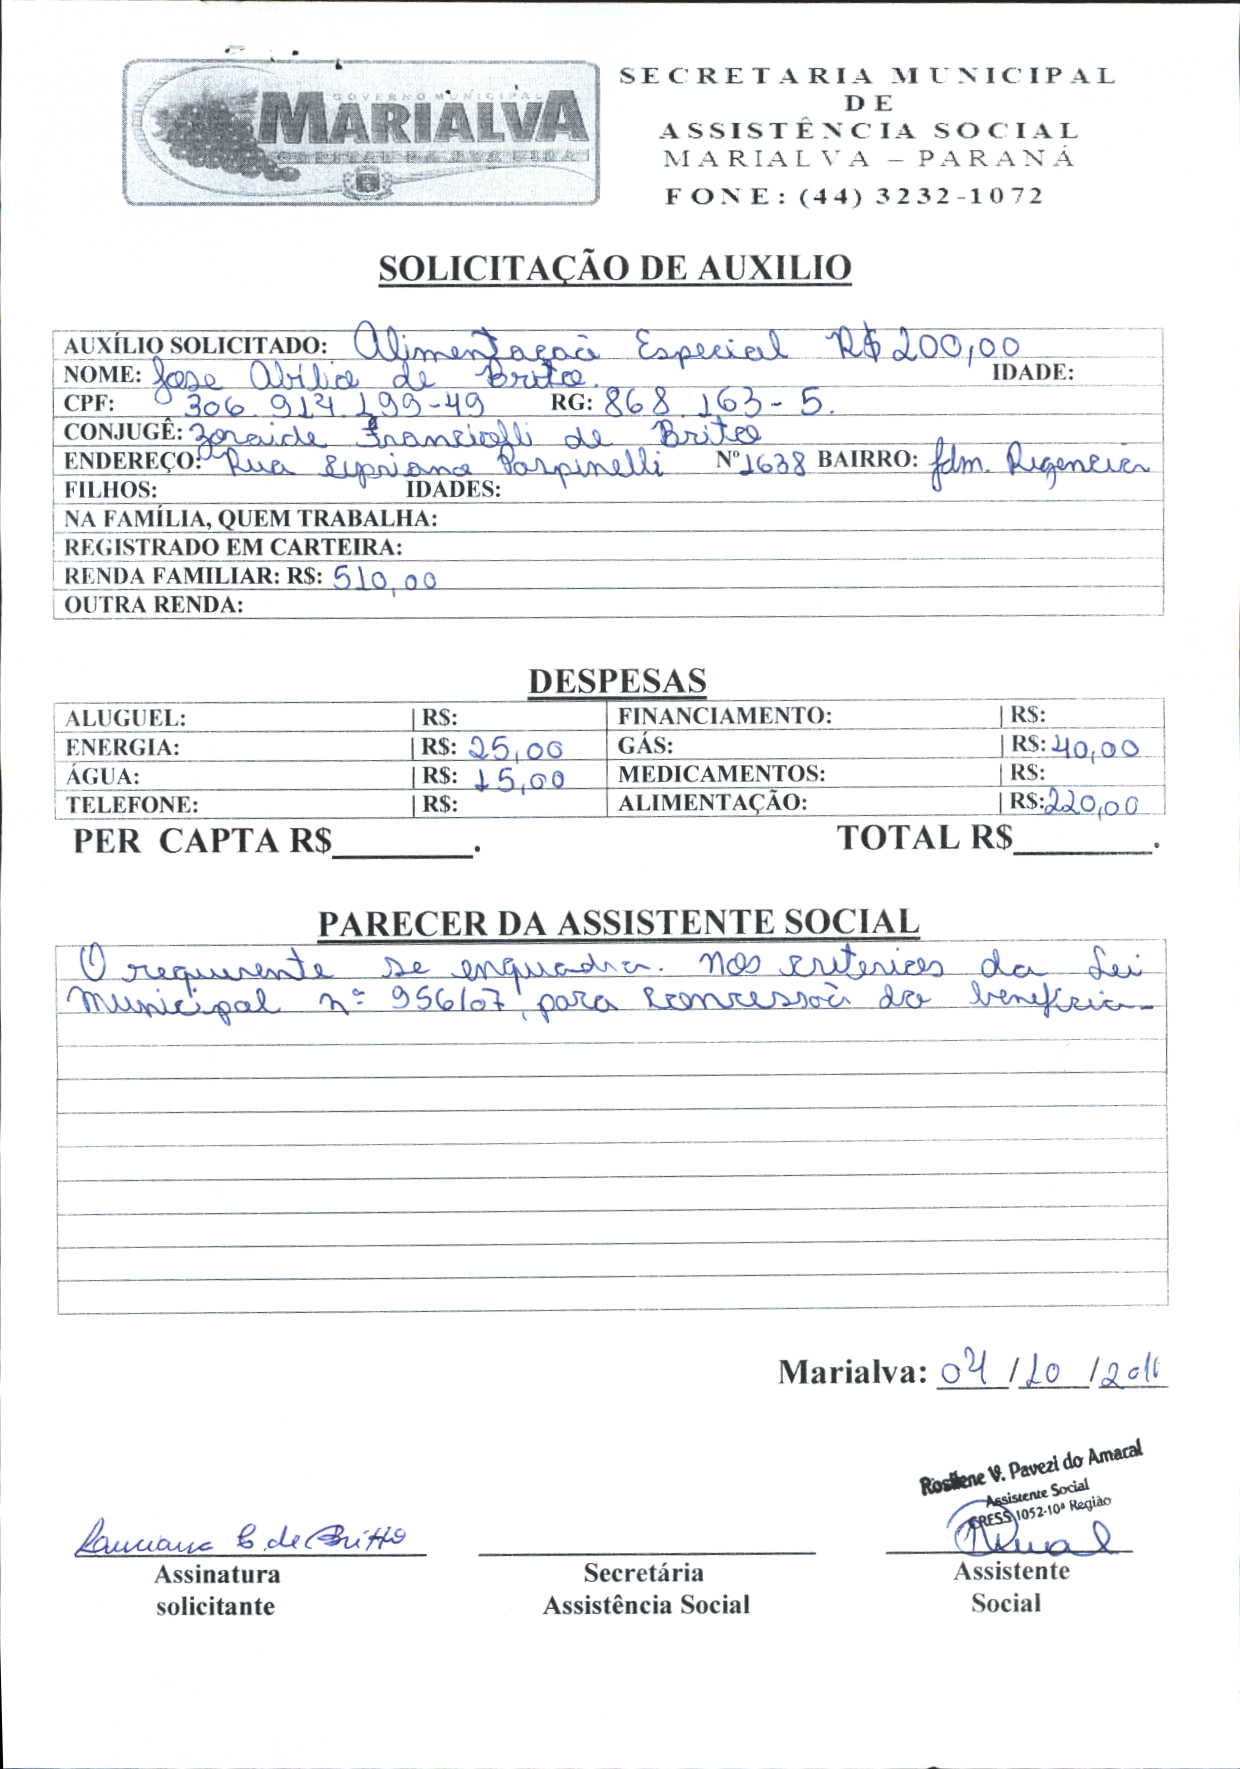 GOVERNO MUNICIPAL
MARIALVA
SECRETARIA MUNICIPAL
DE
ASSISTÊNCIA SOCIAL
MARIALVA – PARANÁ
FONE: (44) 3232-1072
SOLICITAÇÃO DE AUXILIO
AUXÍLIO SOLICITADO: Alimentação Especial R$ 200,00
NOME: Jose Abilio de Brito. IDADE:
CPF: 306.914.199-49 RG: 868.163-5.
CONJUGÊ: Zoraide Francicolli de Brito
ENDEREÇO: Rua Sypriano Parpinelli Nº 1638 BAIRRO: Jdm. Regencia
FILHOS: IDADES:
NA FAMÍLIA, QUEM TRABALHA:
REGISTRADO EM CARTEIRA:
RENDA FAMILIAR: R$: 510,00
OUTRA RENDA:
DESPESAS
ALUGUEL: | R$: FINANCIAMENTO: | R$:
ENERGIA: | R$: 25,00 GÁS: | R$: 40,00
ÁGUA: | R$: 15,00 MEDICAMENTOS: | R$:
TELEFONE: | R$: ALIMENTAÇÃO: | R$: 220,00
PER CAPTA R$________. TOTAL R$________.
PARECER DA ASSISTENTE SOCIAL
O requerente se enquadra. nos criterios da Lei
Municipal nº 956/07, para concessão do beneficio-
Marialva: 04/10/2011
Rosilene V. Pavezi do Amaral
Assistente Social
CRESS 1052-10ª Região
de Britto
Assinatura Secretária Assistente
solicitante Assistência Social Social